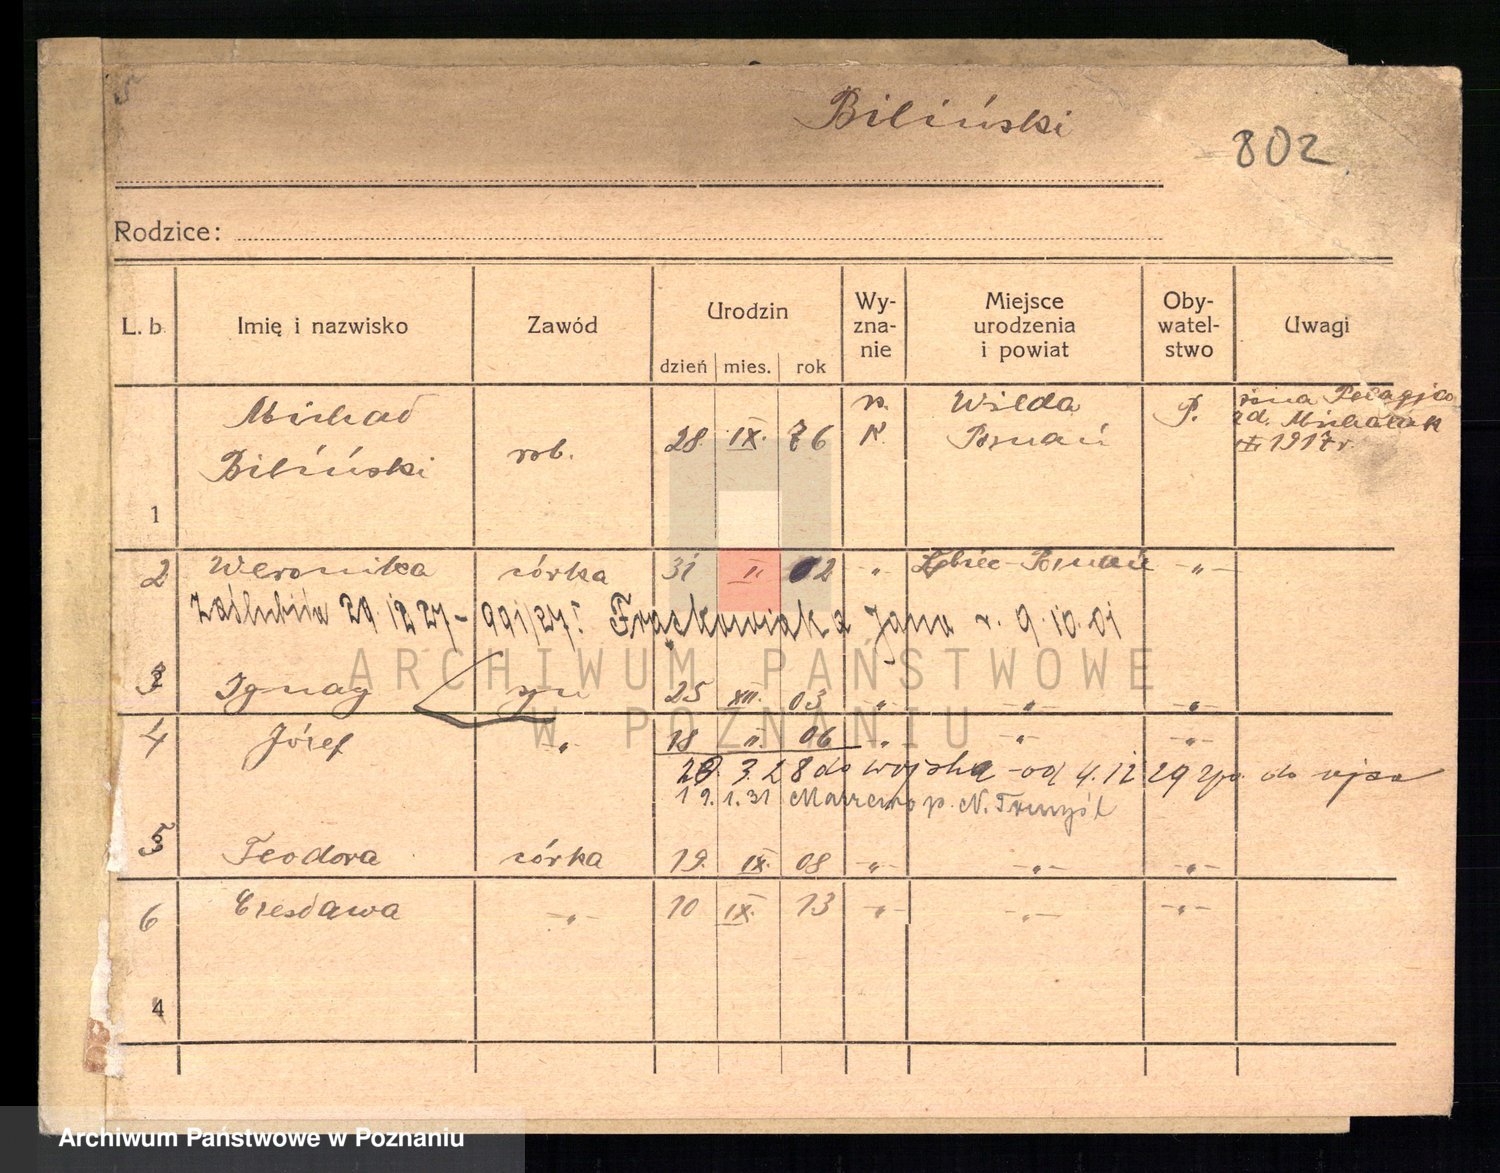 Biliński
802
Rodzice:
L. b. Imię i nazwisko Zawód Urodzin dzień mies. rok Wy-zna-nie Miejsce urodzenia i powiat Oby-watel-stwo Uwagi
Michał Biliński rob. 28. IX. 76 r. K. Wilda Poznań P. żona Pelagja zd. Michalak 1917 r.
1
2 Weronika córka 31 II 02 -„- Żbiec-Poznań -„-
zaślubiła 29 12 27 - 991/27! Frąckowiaka Jana r. 9.10.01
ARCHIWUM PAŃSTWOWE
3 Ignacy syn 25 XII. 03 „ -„- „
W POZNANIU
4 Józef -„- 18 II 06 „ -„- -„-
28. 3. 28 do wojska - od 4. 12 29 do ojca
19. 1. 31
5 Teodora córka 19. IX. 08 -„- -„- -„-
6 Czesława -„- 10 IX. 13 -„- -„- -„-
4
Archiwum Państwowe w Poznaniu